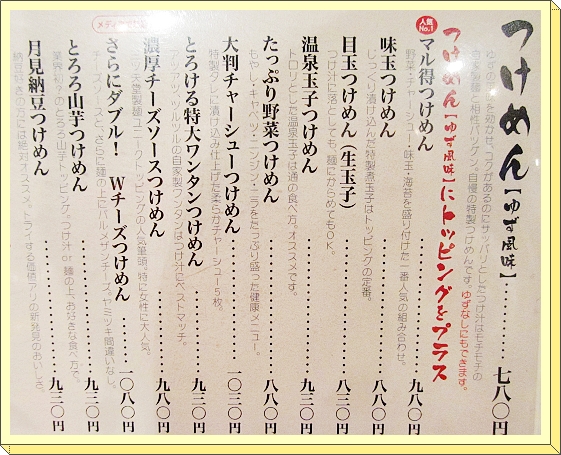 つけめん【ゆず風味】……七八〇円
ゆずの香りを効かせ、コクがあるのにサッパリとしたつけ汁はモチモチの
自家製麺と相性バツグン。自慢の特製つけめんです。ゆずなしにもできます。
つけめん【ゆず風味】にトッピングをプラス
人気No.1
マル得つけめん……九八〇円
野菜・チャーシュー・味玉・海苔を盛り付けた一番人気の組み合わせ。
味玉つけめん……八八〇円
じっくり漬け込んだ特製煮玉子はトッピングの定番。
目玉つけめん（生玉子）……八三〇円
つけ汁に落としても、麺にからめてもOK。
温泉玉子つけめん……九三〇円
トロリとした温泉玉子は通の食べ方。オススメです。
たっぷり野菜つけめん……八八〇円
もやし・キャベツ・ニンジン・ニラをたっぷり盛った健康メニュー。
大判チャーシューつけめん……一〇三〇円
特製タレに漬け込み仕上げた柔らかチャーシュー5枚。
とろける特大ワンタンつけめん……九三〇円
アツアツ、ツルツルの自家製ワンタンはつけ汁にベストマッチ。
濃厚チーズソースつけめん……九八〇円
天堂製麺ユニークトッピングの人気筆頭。特に女性に大人気。
さらにダブル！ Wチーズつけめん……一〇八〇円
チーズソースと、さらに麺の上にパルメザンチーズ。ヤミツキ間違いなし。
とろろ山芋つけめん……九三〇円
業界初？のとろろ山芋トッピング。つけ汁or麺の上、お好きな食べ方で。
月見納豆つけめん……九三〇円
納豆好きの方には絶対オススメ。トライする価値アリの新発見のおいしさ。